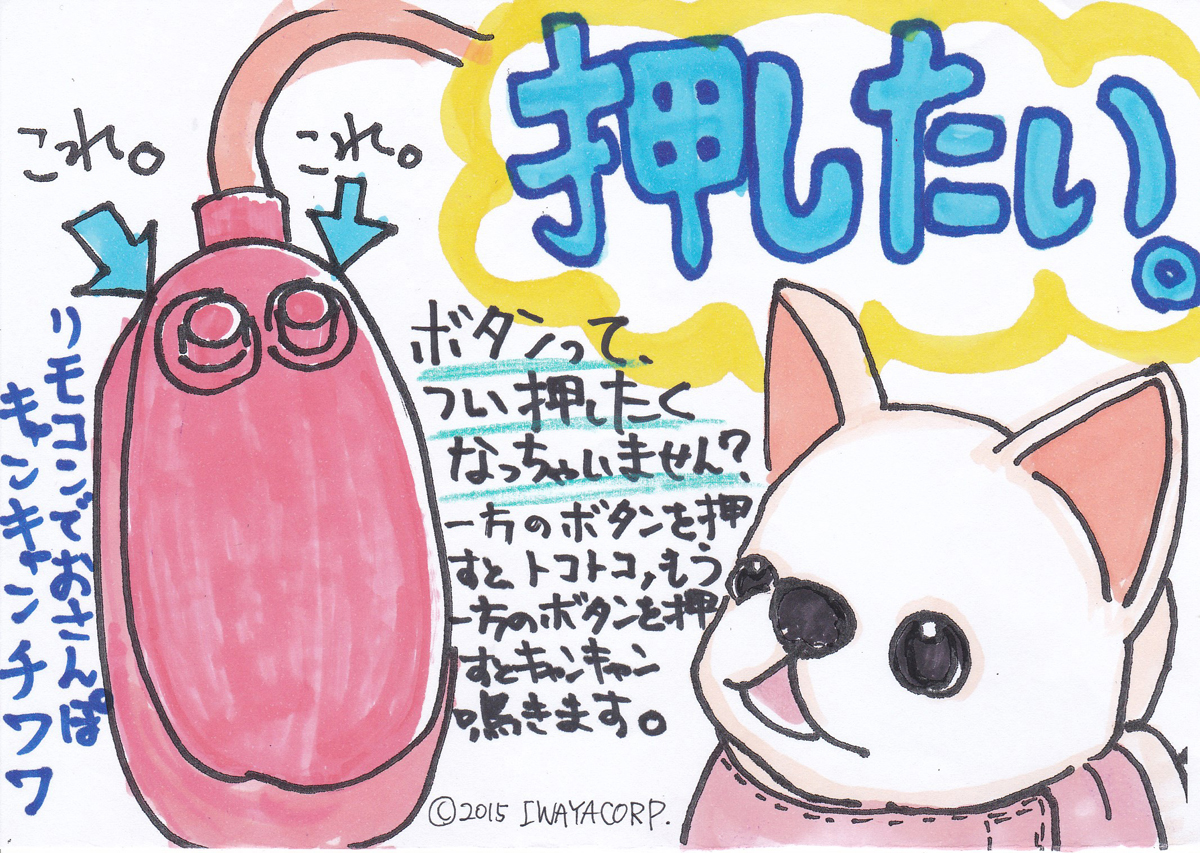 押したい。
これ。
これ。
ボタンって、
つい押したく
なっちゃいません?
一方のボタンを押
すと、トコトコ、もう
一方のボタンを押
すとキャンキャン
鳴きます。
リモコンでおさんぽ
キャンキャンチワワ
©2015 IWAYACORP.